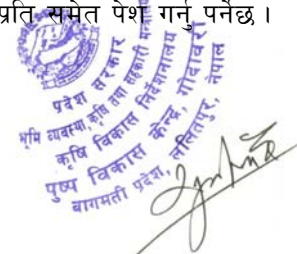 प्रति समेत पेश गर्नु पर्नेछ ।
प्रदेश सरकार
भूमि व्यवस्था, कृषि तथा सहकारी
कृषि विकास निर्देशनालय
पुष्प विकास केन्द्र, गोदावरी
बागमती प्रदेश, ललितपुर, नेपाल